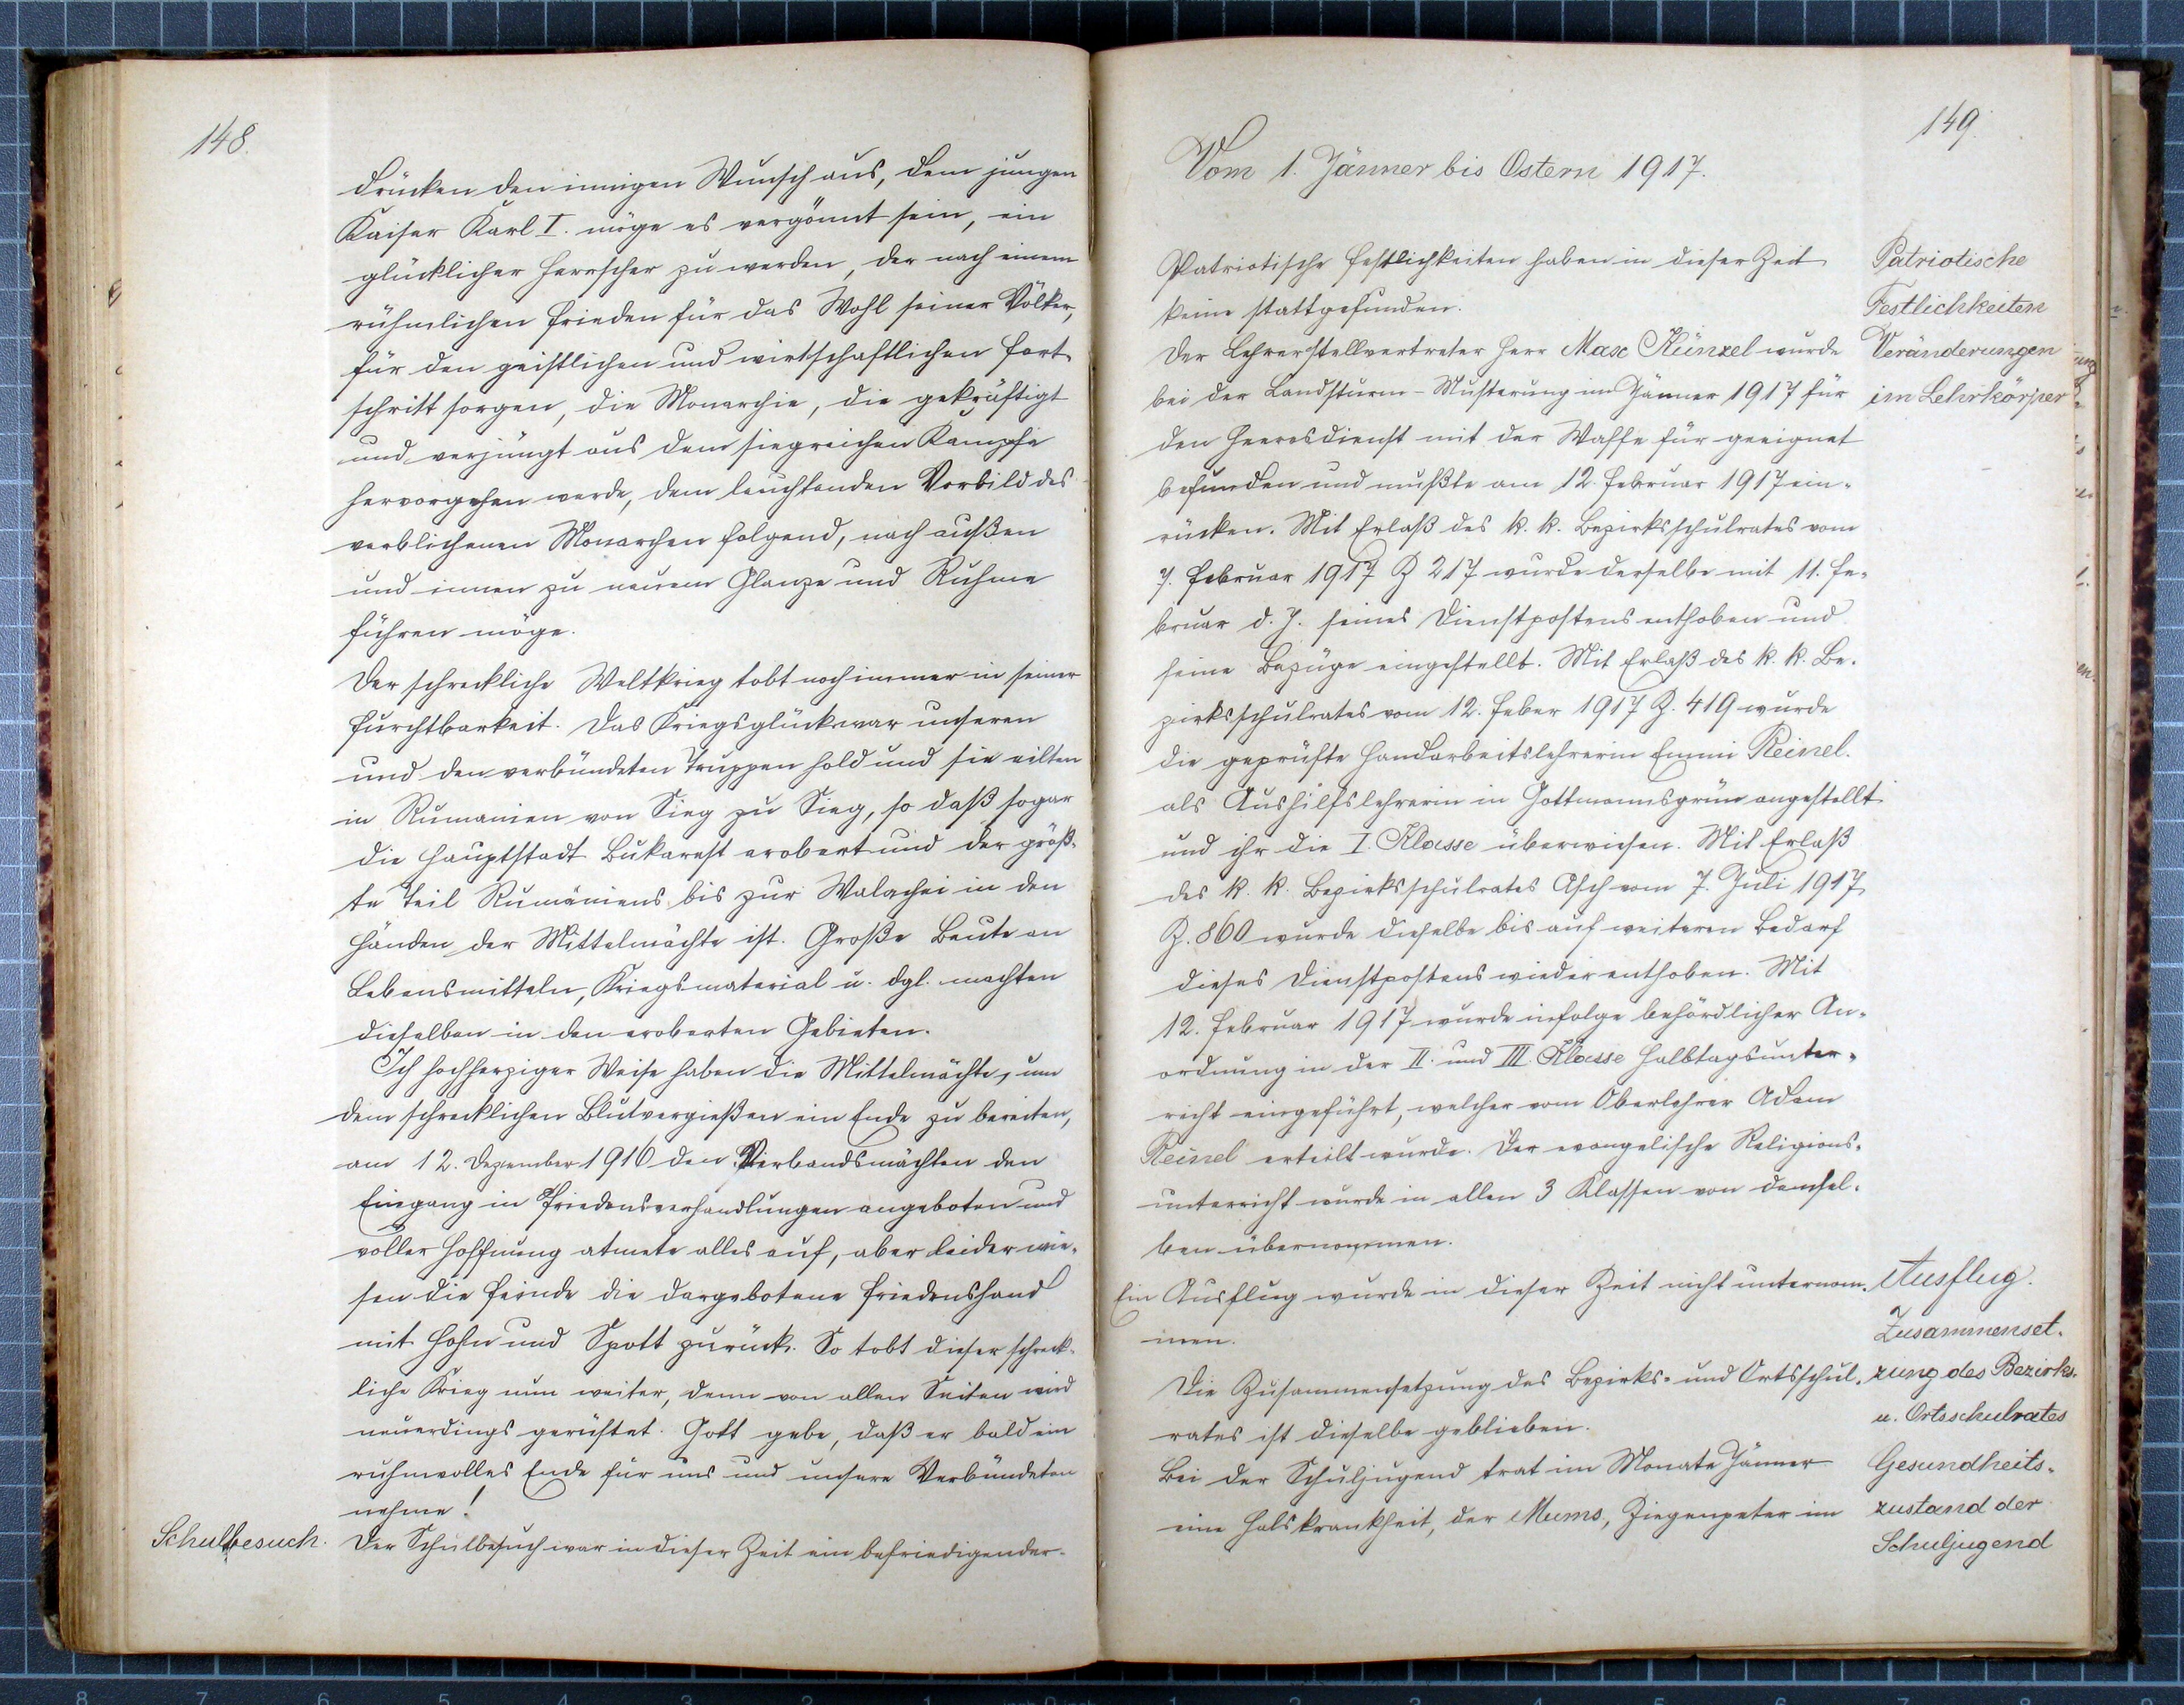 148.
drücken den innigen Wunsch aus, dem jungen
Kaiser Karl I. möge es vergönnt sein, ein
glücklicher Herrscher zu werden, der nach einem
rühmlichen Frieden für das Wohl seiner Völker,
für den geistlichen und wirtschaftlichen Fort-
schritt sorgen, die Monarchie, die gekräftigt
und verjüngt aus dem siegreichen Kampfe
hervorgehen werde, dem leuchtenden Vorbild des
verblichenen Monarchen folgend, nach außen
und innen zu neuem Glanze und Ruhme
führen möge.
Der schreckliche Weltkrieg tobt noch immer in seiner
Furchtbarkeit. Das Kriegsglück war unseren
und den verbündeten Truppen hold und sie eilten
in Rumänien von Sieg zu Sieg, so daß sogar
die Hauptstadt Bukarest erobert und der größ-
te Teil Rumäniens bis zur Walachei in den
Händen der Mittelmächte ist. Große Beute an
Lebensmitteln, Kriegsmaterial u. dgl. machten
dieselben in den eroberten Gebieten.
Ich hochherziger Weise haben die Mittelmächte, um
dem schrecklichen Blutvergießen ein Ende zu bereiten,
am 12. Dezember 1916 den Vierbandsmächten den
Eingang in Friedensverhandlungen angeboten und
voller Hoffnung atmete alles auf, aber leider wie-
sen die Feinde die dargebotene Friedenshand
mit Hohn und Spott zurück. So tobt dieser schreck-
liche Krieg nun weiter, denn von allen Seiten wird
neuerdings gerüstet. Gott gebe, daß er bald ein
ruhmvolles Ende für uns und unsere Verbündeten
nehme!
Schulbesuch. Der Schulbesuch war in dieser Zeit ein befriedigender.
149.
Vom 1. Jänner bis Ostern 1917.
Patriotische Festlichkeiten haben in dieser Zeit Patriotische
keine stattgefunden. Festlichkeiten
Der Lehrerstellvertreter Herr Max Künzel wurde Veränderungen
bei der Landsturm-Musterung im Jänner 1917 für im Lehrkörper
den Heeresdienst mit der Waffe für geeignet
befunden und mußte am 12. Februar 1917 ein-
rücken. Mit Erlaß des k. k. Bezirksschulrates vom
7. Februar 1917 Z 217 wurde derselbe mit 11. Fe-
bruar d. J. seines Dienstpostens enthoben und
seine Bezüge eingestellt. Mit Erlaß des k. k. Be-
zirksschulrates vom 12. Feber 1917 Z. 419 wurde
die geprüfte Handarbeitslehrerin Emmi Reinel.
als Aushilfslehrerin in Gottmannsgrün angestellt
und ihr die I. Klasse überwiesen. Mit Erlaß
des k. k. Bezirksschulrates Asch vom 7. Juli 1917
Z. 860 wurde dieselbe bis auf weiteren Bedarf
dieses Dienstpostens wieder enthoben. Mit
12. Februar 1917 wurde infolge behördlicher An-
ordnung in der II. und III. Klasse Halbtagsunter-
richt eingeführt, welcher vom Oberlehrer Adam
Reinel erteilt wurde. Der evangelische Religions-
unterricht wurde in allen 3 Klassen von demsel-
ben übernommen.
Ein Ausflug wurde in dieser Zeit nicht unternom- Ausflug.
men. Zusammenset-
Die Zusammensetzung des Bezirks- und Ortsschul- zung des Bezirks-
rates ist dieselbe geblieben. u. Ortsschulrates
Bei der Schuljugend trat im Monate Jänner Gesundheits-
eine Halskrankheit, der Mums, Ziegenpeter im zustand der
Schuljugend